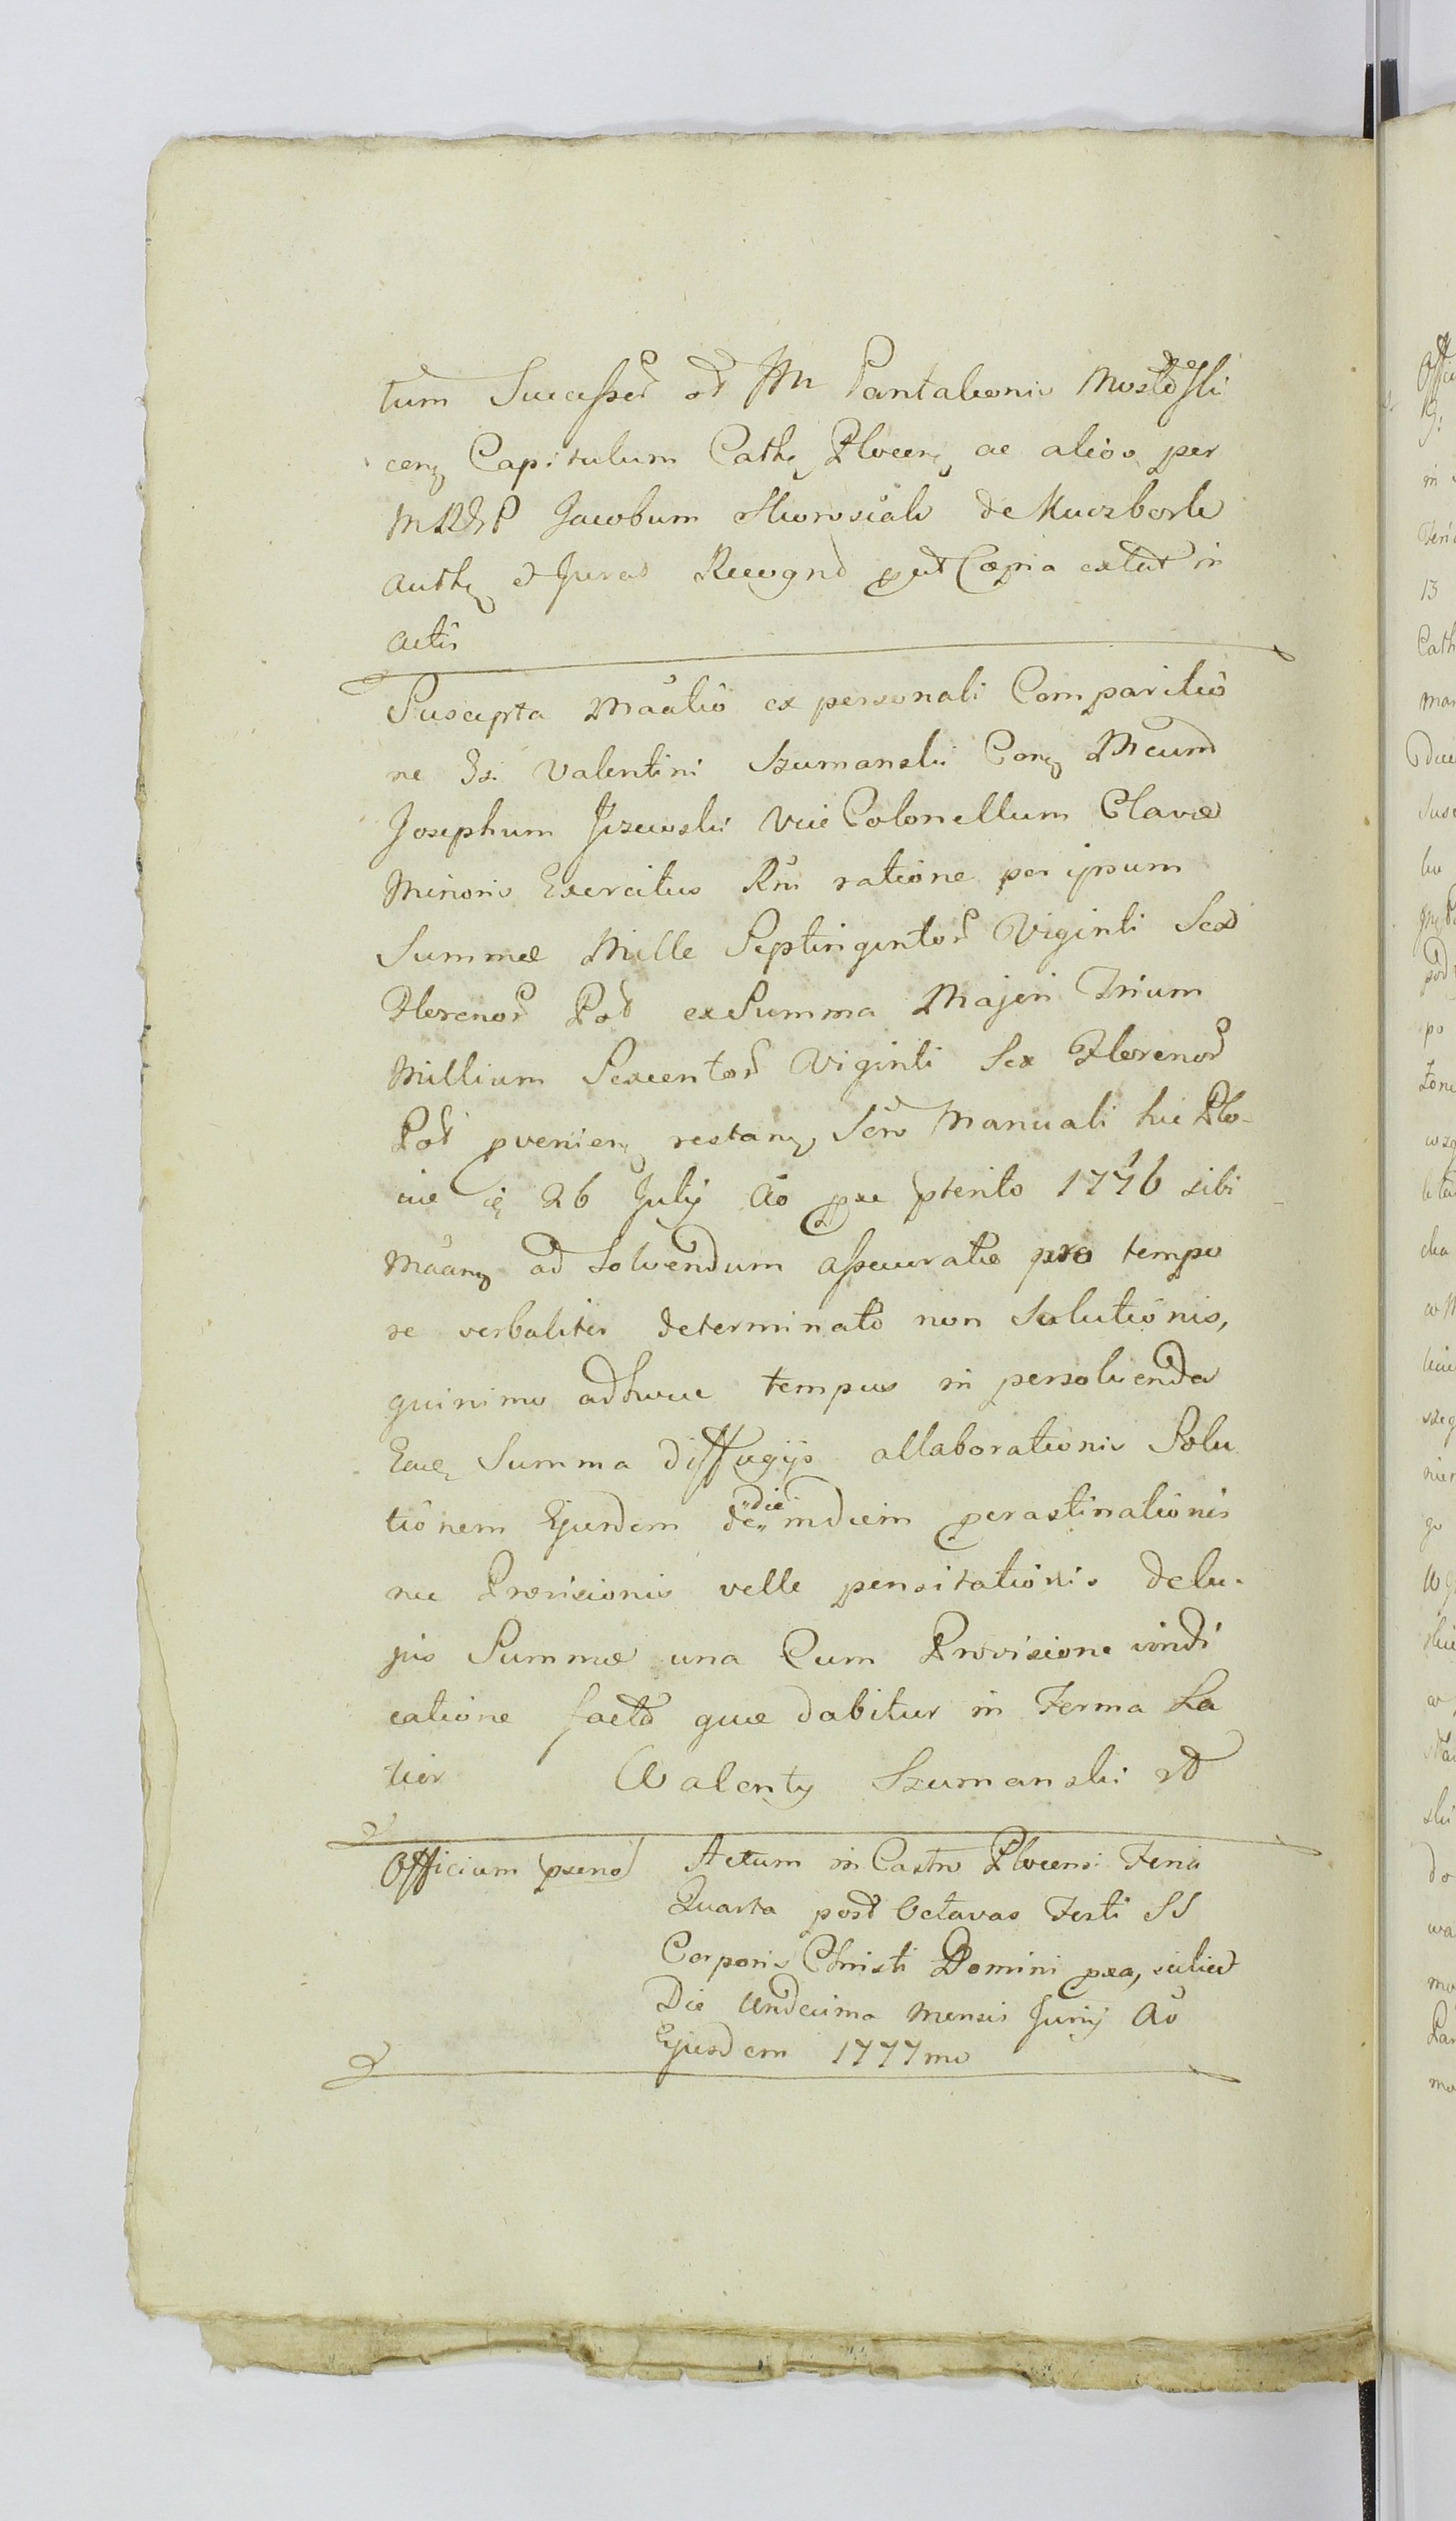 tum Successor et Jm Pantaleonis Mostowski
cens Capitulum Cath Plocens ac alios per
MRdP Jacobum de Kuczbork
auth et Jurat Recognd put Copia extat in
actis
Suscepta Maatio ex personali Comparitio
ne Gsi Valentini Szumanski Cons Mcum
Josephum Jizewski Vice Colonellum Clavæ
Minoris Exercitus Rni ratione per ipsum
Summæ Mille Septingentor Viginti Sex
Florenor Pol ex Summa Majori Trium
Millium Sexcentor Viginti Sex Florenor
Pol pvenien restan Scro Manuali hic Plo-
ciæ 26 July Ao præ pterito 1776 sibi
Maan ad Solvendum assecuratæ pro tempo
re verbaliter determinato non Solutionis,
quinimo adhuc tempus in persolvenda
Eade Summa diffugijs allaborationis Solu
tionem Ejusdem de die indiem perastinationis
nec Provisionis velle pensitationis delu-
jus Summæ una Cum Provisione vindi
catione facta quæ dabitur in Forma La
tior Walenty Szumanski
Officium pxens Actum in Castro Plocensi Feria
Quarta post Octavas Festi SS
Corporis Christi Domini pxa, scilicet
Die Undecima Mensis Junij Ao
Ejusdem 1777mo